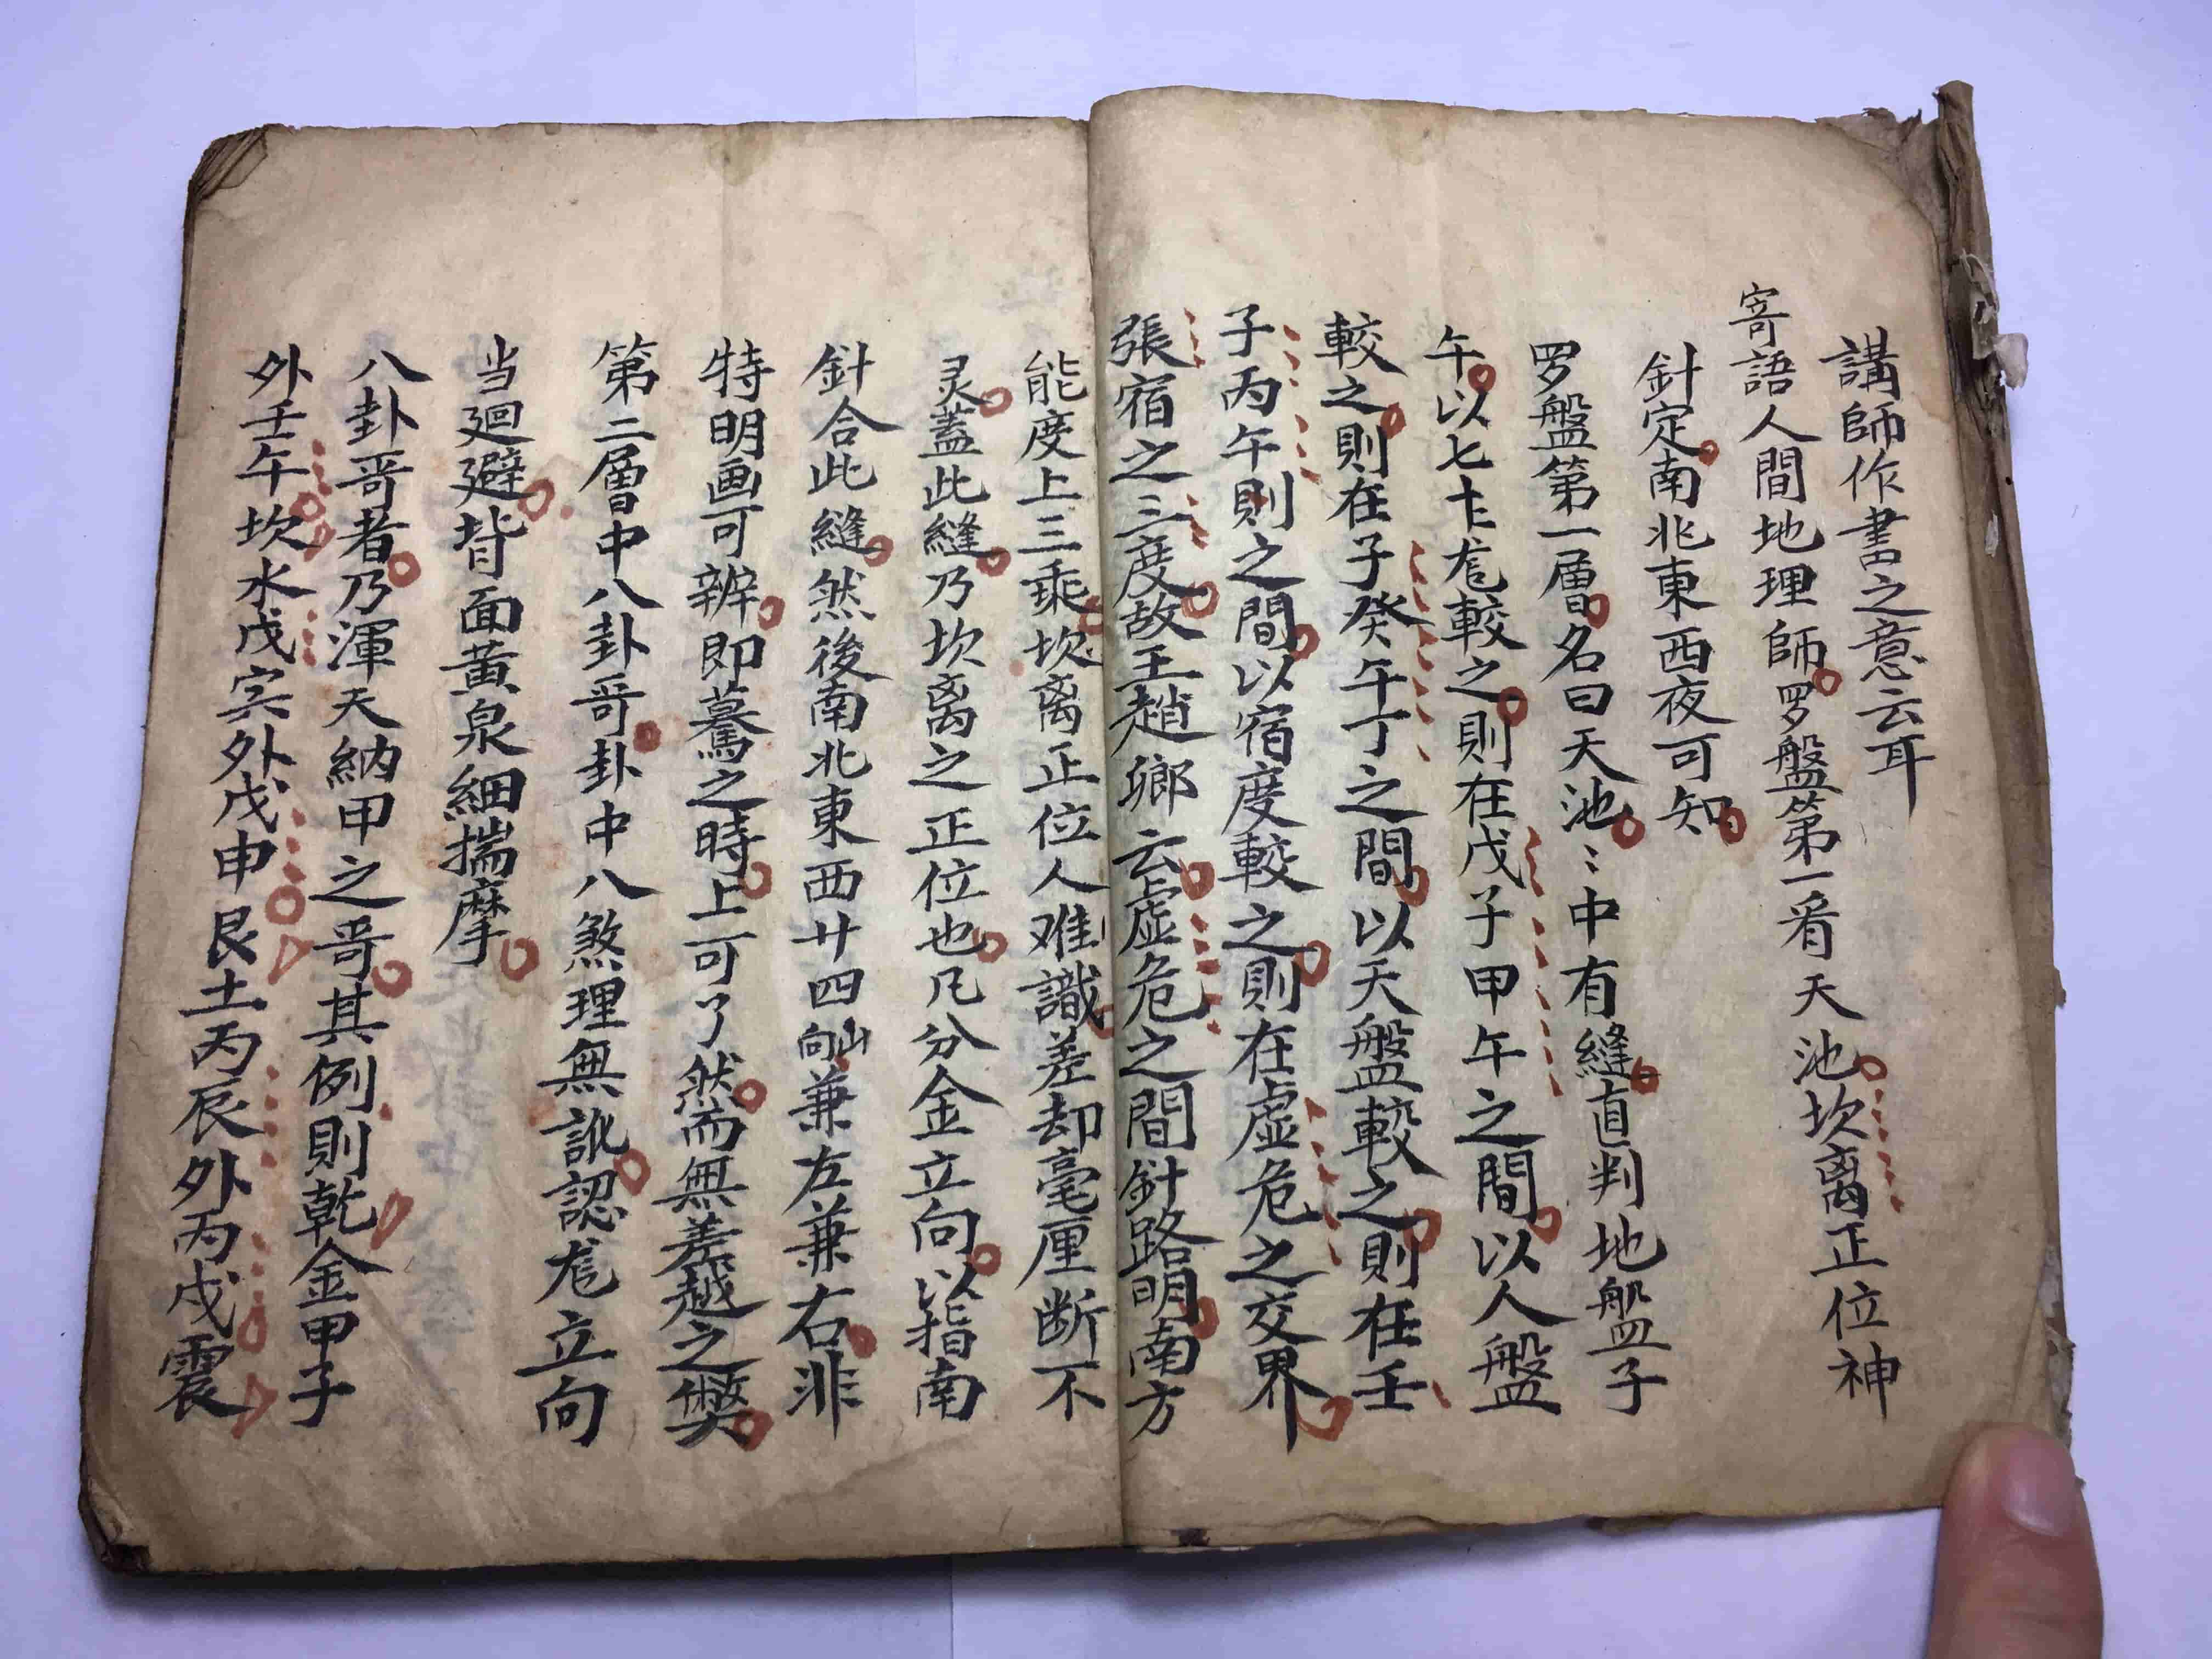 講師作書之意云耳
寄語人間地理師罗盤第一看天池坎离正位神
針定南北東西夜可知
罗盤第一層名曰天池〻中有縫直判地盤子
午以七十較之則在戊子甲午之間以人盤
較之則在子癸午丁之間以天盤較之則在壬
子丙午則之間以宿度較之則在虛危之交界
張宿之三度故王趙卿云虛危之間針路明南方
能度上三乘坎离正位人难識差却毫厘断不
灵蓋此縫乃坎离之正位也凡分金立向以指南
針合此縫然後南北東西廿四山向兼左兼右非
特明画可辨即驀之時上可了然而無差越之弊
第二層中八卦哥卦中八煞理無訛認立向
当廻避背面黃泉細揣摩
八卦哥者乃渾天納甲之哥其例則乾金甲子
外壬午坎水戊寅外戊申艮土丙辰外丙戍震